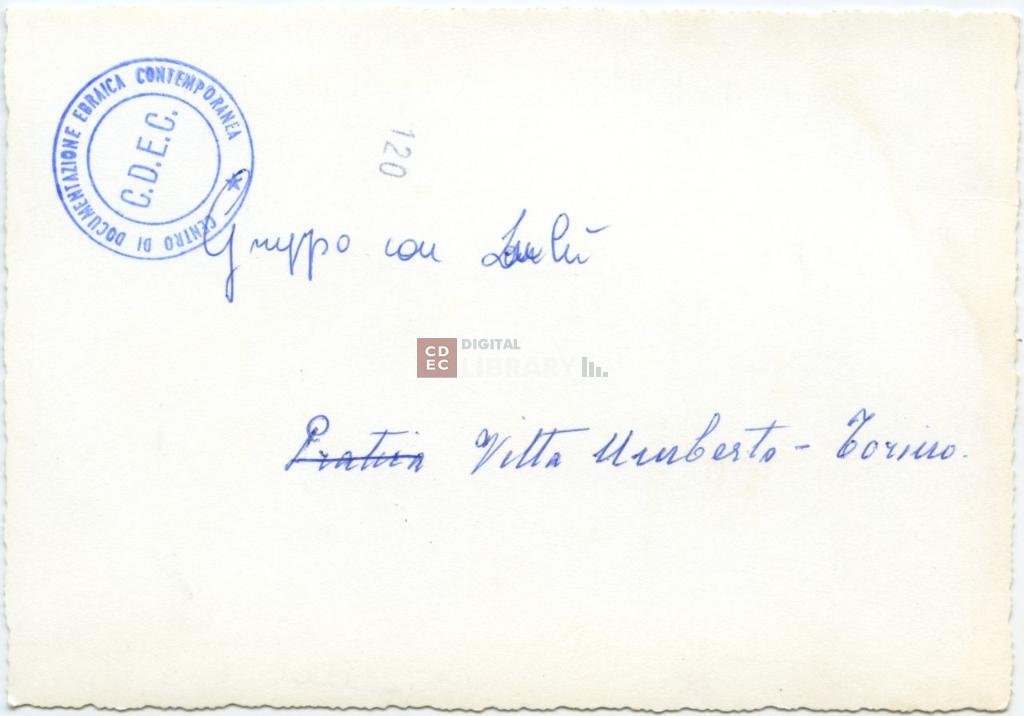 CENTRO DI DOCUMENTAZIONE EBRAICA CONTEMPORANEA
C.D.E.C.
120
Gruppo con
CD EC DIGITAL LIBRARY
Pratica Vitta Umberto - Torino.